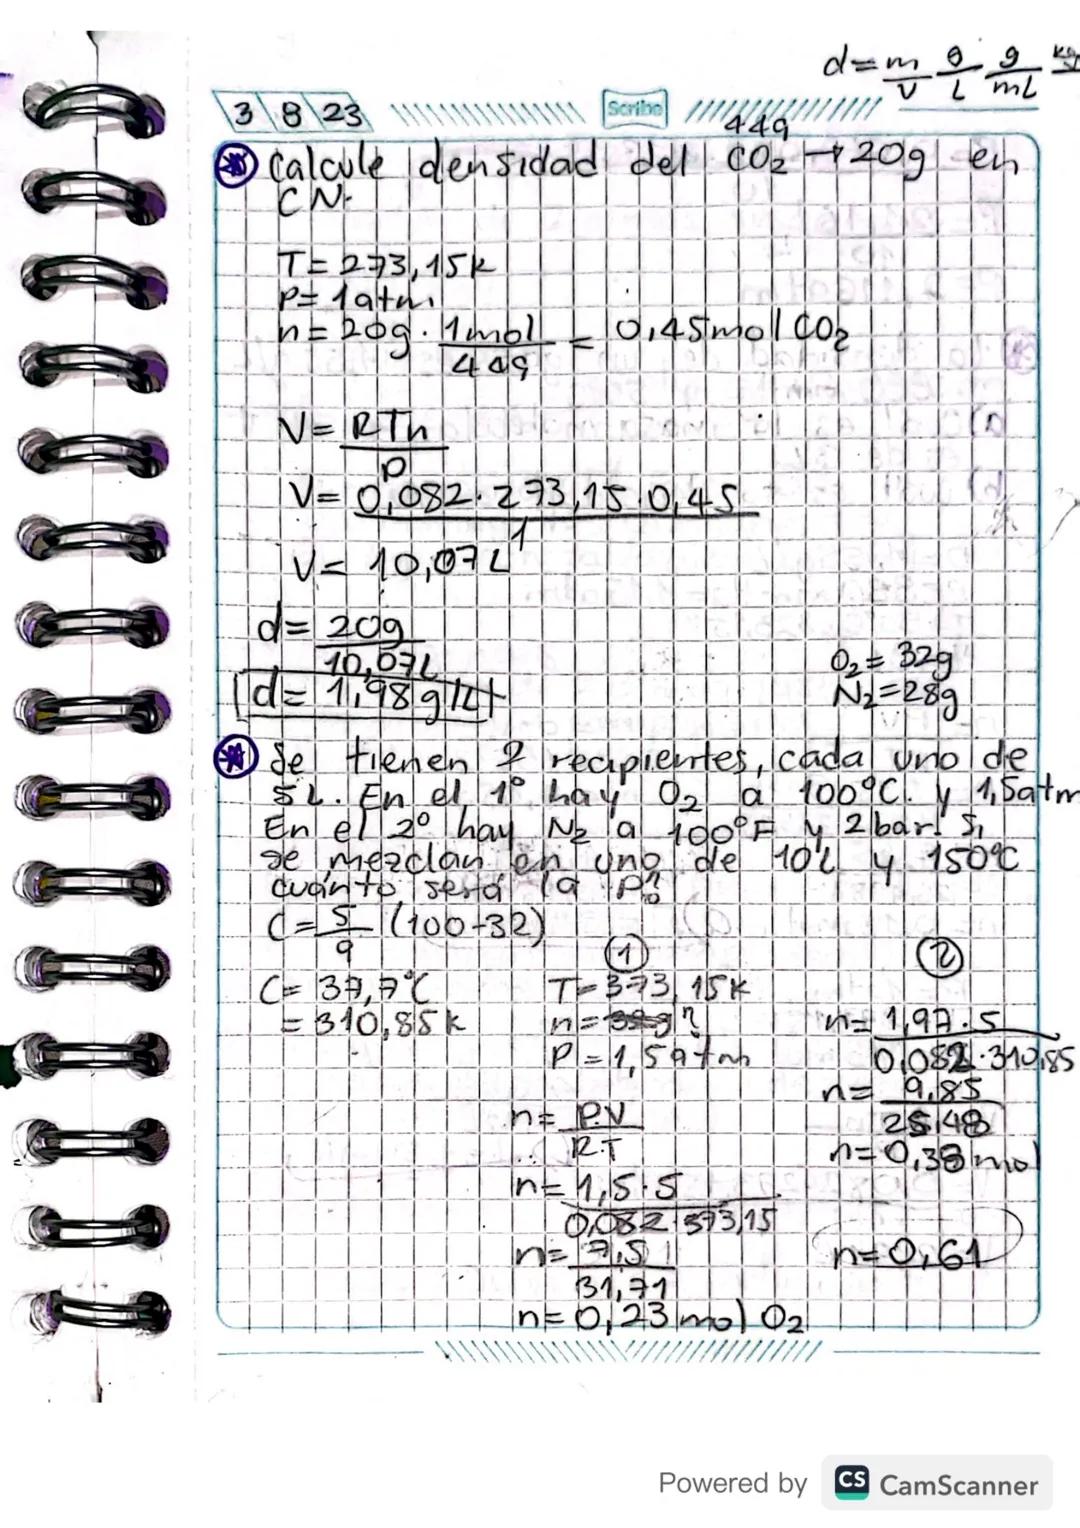 d=m/V g/L g/mL kg
3 8 23
Scribe
44g
Calcule densidad del CO2 → 20g en
CN.
T= 273,15k
P= 1atm.
n= 20g · 1mol/44g = 0,45mol CO2
V= RTn/P
V= 0,082·273,15·0,45/1
V= 10,07L
d= 20g/10,07L
d= 1,98g/L
O2= 32g
N2=28g
Se tienen 2 recipientes, cada uno de
5L. En el 1° hay O2 a 100°C. y 1,5atm
En el 2° hay N2 a 100°F y 2bar. Si
se mezclan en uno de 10L y 150°C
cuánto será la P?
C= 5/9 (100-32)
C= 37,7°C
= 310,85k
①
T=373,15k
n= ?
P=1,5atm
n= P.V/R.T
n= 1,5·5/0,082·373,15
n= 7,5/31,71
n= 0,23 mol O2
②
n= 1,97.5/0,082·310,85
n= 9,85/25,48
n=0,38 mol
n=0,61
Powered by CS CamScanner